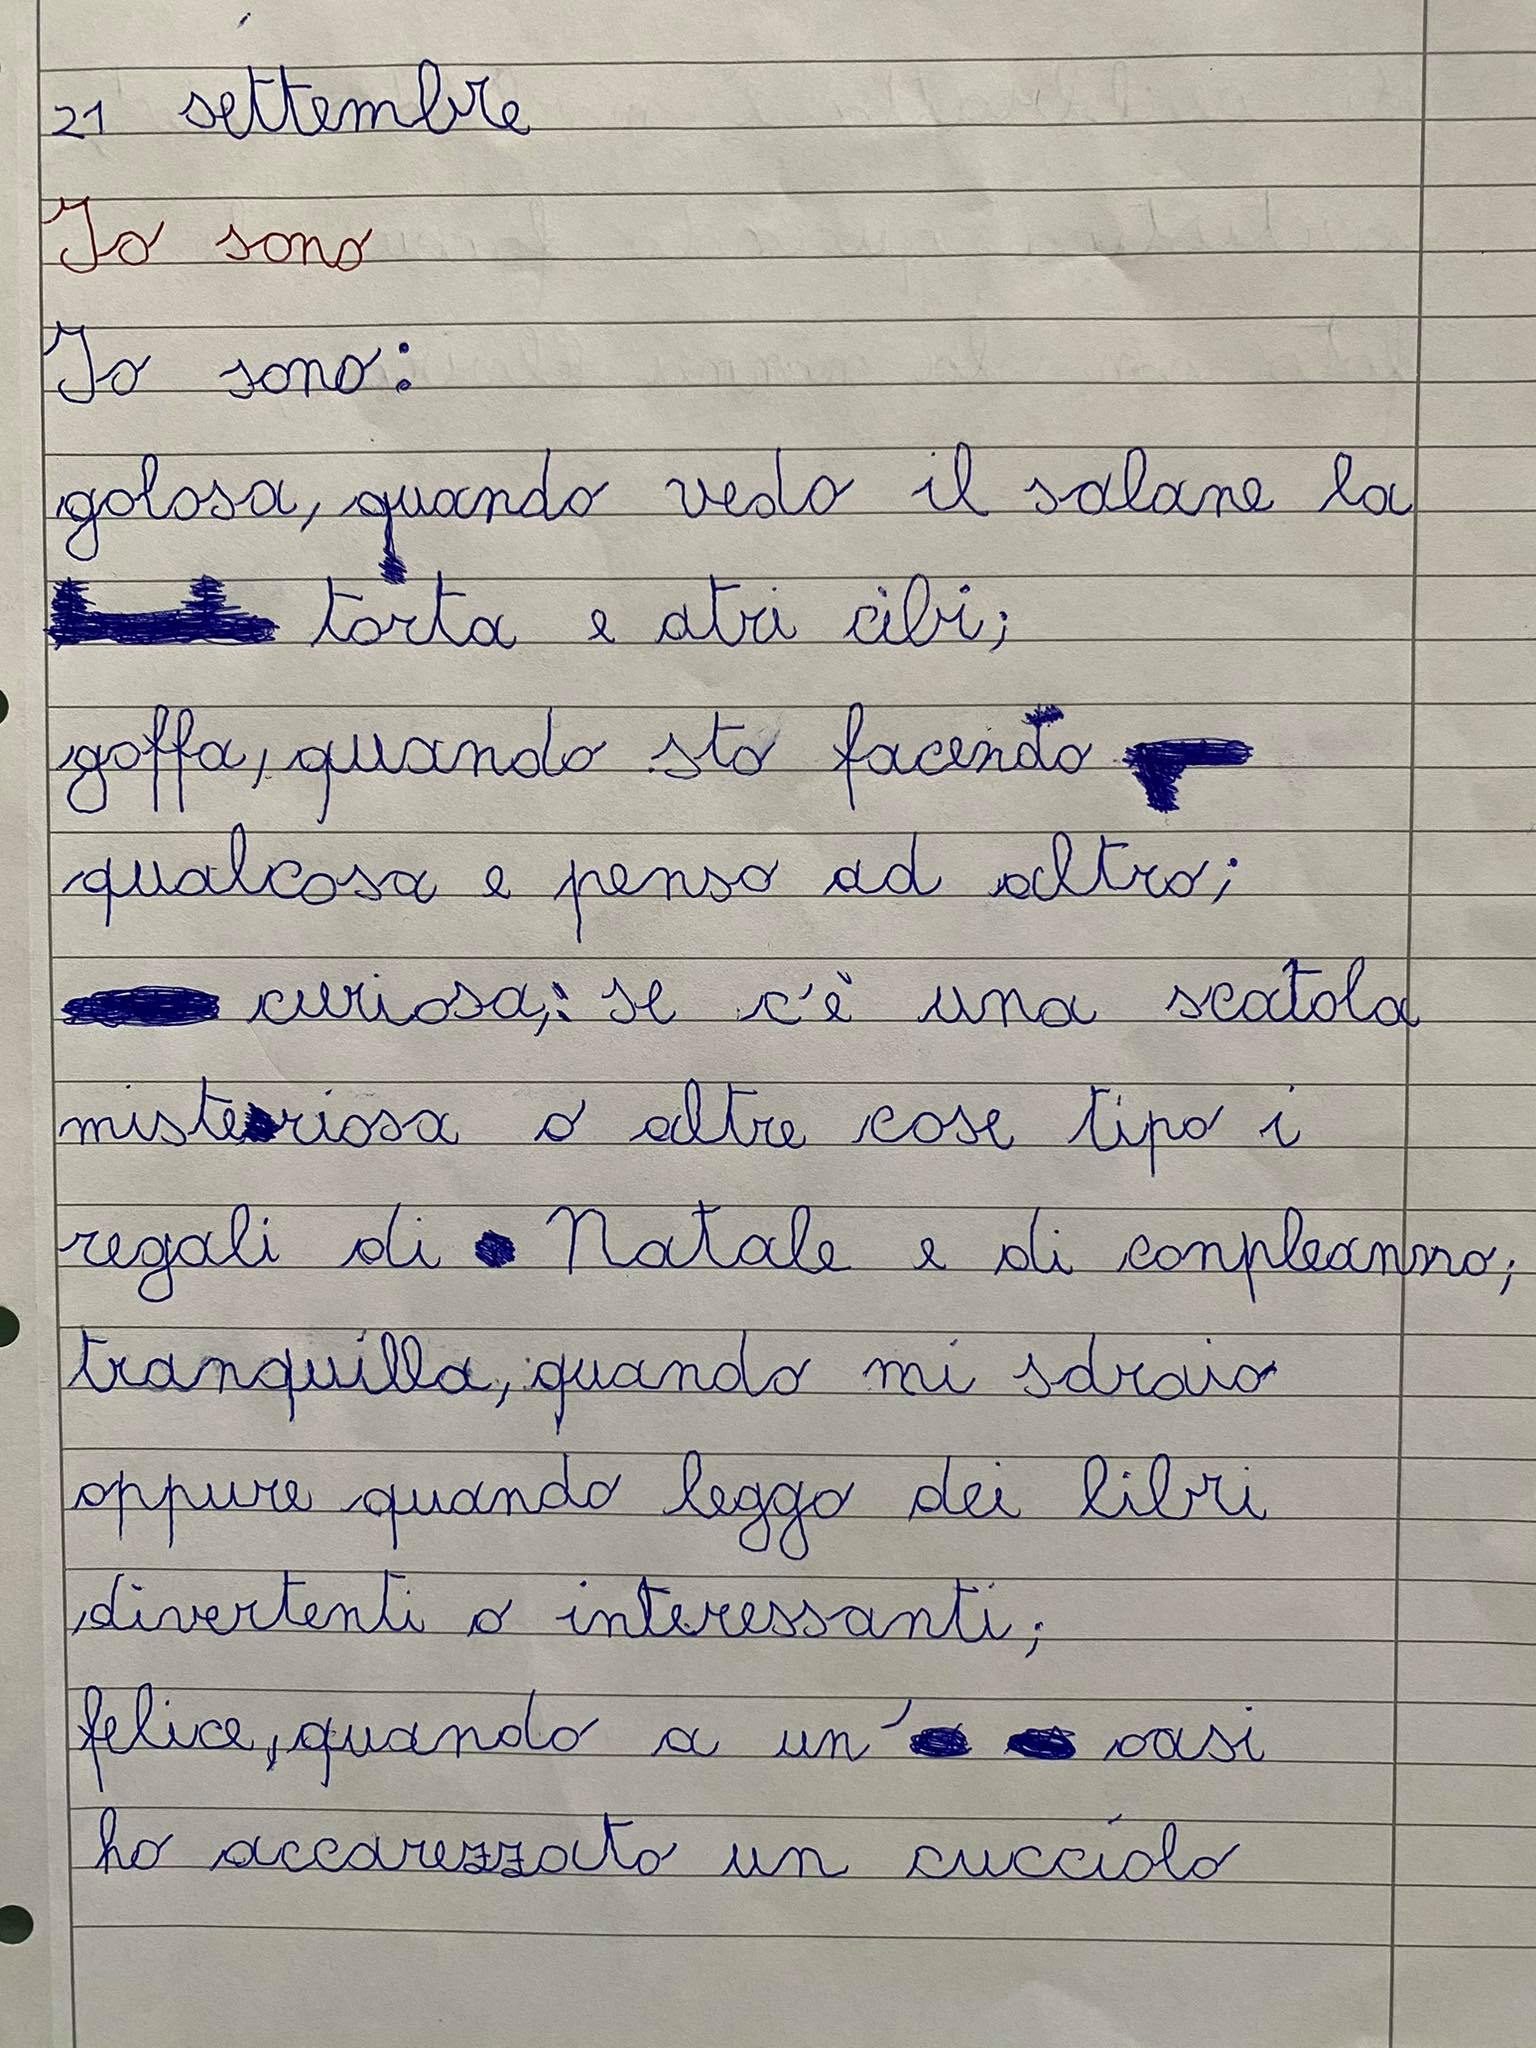 21 settembre
Io sono
Io sono:
golosa, quando vedo il salane la
torta e atri cibi;
goffa, quando sto facendo
qualcosa e penso ad altro;
curiosa,: se c'è una scatola
misteriosa o altre cose tipo i
regali di Natale e di conpleanno;
tranquilla, quando mi sdraio
oppure quando leggo dei libri
divertenti o interessanti;
felice, quando a un' oasi
ho accarezzato un cucciolo